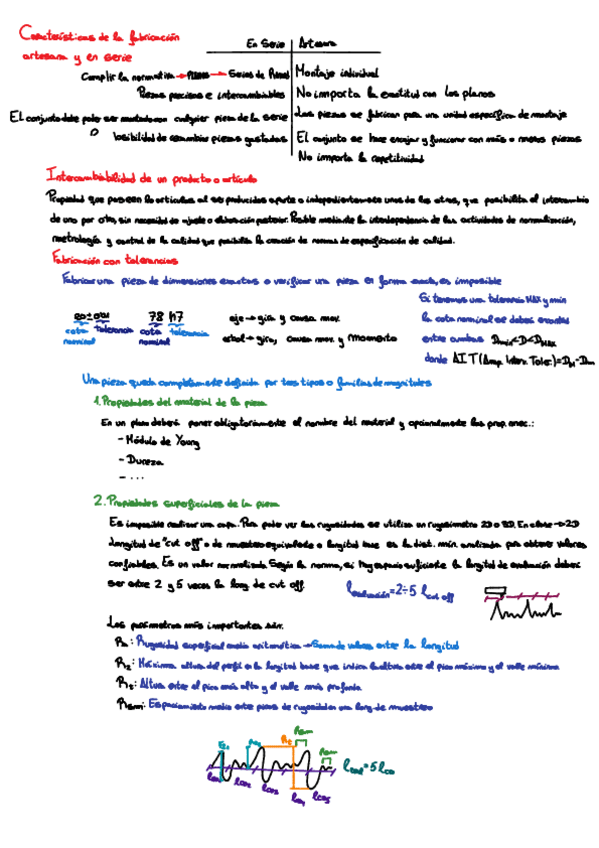 Características de la fabricación
artesana y en serie
En Serie | Artesana
Cumplir la normativa → Planos → Series de Piezas | Montaje individual
Piezas precisas e intercambiables | No importa la exactitud con los planos
El conjunto debe poder ser montado con cualquier pieza de la serie | Las piezas se fabrican para una unidad específica de montaje
Posibilidad de recambiar piezas gastadas | El conjunto se hace encajar y funcionar con más o menos piezas
No importa la repetitividad
Intercambiabilidad de un producto o artículo
Propiedad que poseen los artículos al ser producidos aparte o independientemente unos de los otros, que posibilita el intercambio
de uno por otro, sin necesidad de ajuste o elaboración posterior. Posible mediante la interdependencia de las actividades de normalización,
metrología y control de la calidad que posibilita la creación de normas de especificación de calidad.
Fabricación con tolerancias
Fabricar una pieza de dimensiones exactas o verificar una pieza en forma exacta, es imposible
Si tenemos una tolerancia MAX y min
la cota nominal se debe encontrar
entre ambas Dmin<D<Dmax
donde AIT (Amp. Interv. Toler.) = DM-Dm
78 h7
cota nominal tolerancia cota nominal tolerancia
eje → gira y causa mov.
árbol → gira, causa mov. y momento
Una pieza queda completamente definida por tres tipos o familias de magnitudes
1. Propiedades del material de la pieza
En un plano deberá poner obligatoriamente el nombre del material y opcionalmente las prop. mec.:
- Módulo de Young
- Dureza
- ...
2. Propiedades superficiales de la pieza
Es imposible realizar una copia. Para poder ver las rugosidades se utiliza un rugosímetro 2D o 3D. En clase → 2D
Longitud de "cut off" o de muestreo equivalente o longitud base es la dist. mín. analizada para obtener valores
confiables. Es un valor normalizado. Según la norma, si hay espacio suficiente la longitud de evaluación deberá
ser entre 2 y 5 veces la long. de cut off.
Levaluación = 2÷5 Lcut off
Los parámetros más importantes son:
Ra: Rugosidad superficial media aritmética → Suma de valores entre la longitud
Rz: Máxima altura del perfil en la longitud base que indica la altura entre el pico máximo y el valle mínimo
Rt: Altura entre el pico más alto y el valle más profundo
Rsm: Espaciamiento medio entre picos de rugosidad en una long. de muestreo
Rsm
Rt
Rsm
lco2 lco3
lco4 lco5